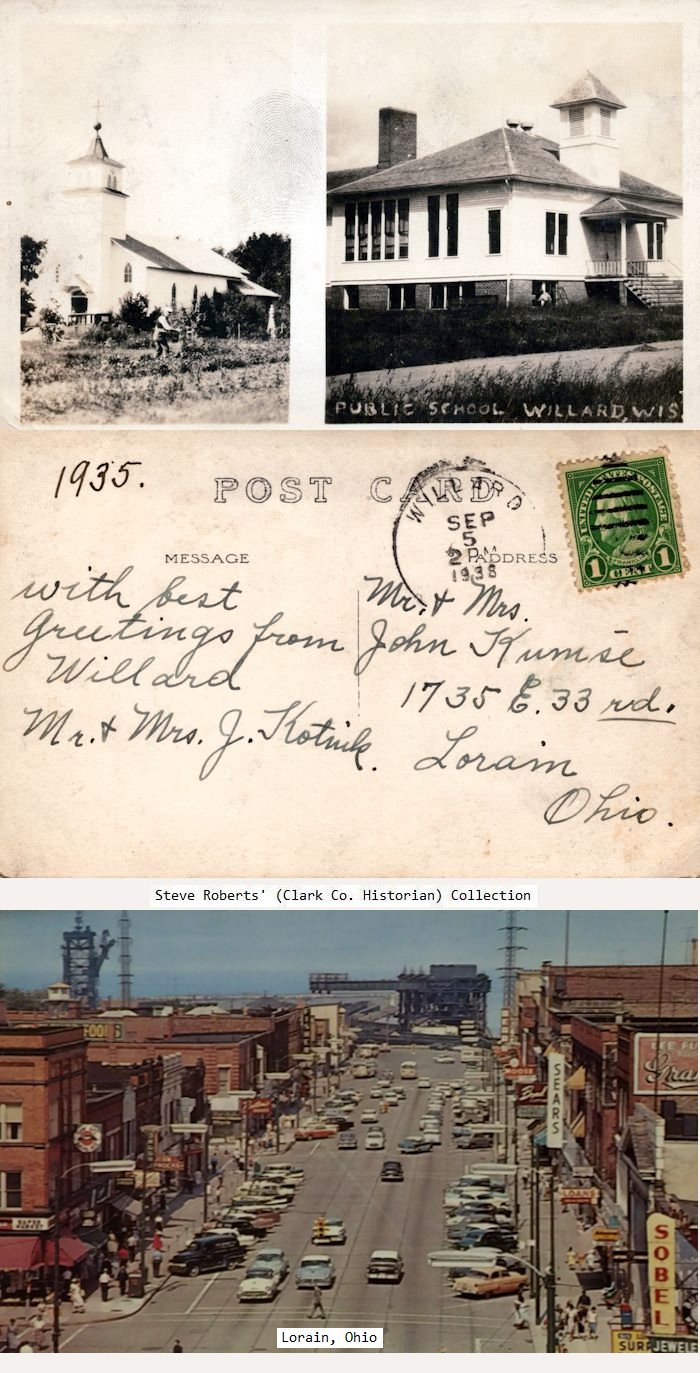 PUBLIC SCHOOL WILLARD, WIS.
1935.
POST CARD
WILLARD
SEP
5
2 PM
1938
UNITED STATES POSTAGE
FRANKLIN
1 CENT 1
MESSAGE
ADDRESS
with best
Greetings from
Willard
Mr. & Mrs. J. Kotnik.
Mr. & Mrs.
John Kumše
1735 E. 33 rd.
Lorain
Ohio.
Steve Roberts' (Clark Co. Historian) Collection
FOOD
SEARS
LOANS
SOBEL
JEWELE
Lorain, Ohio